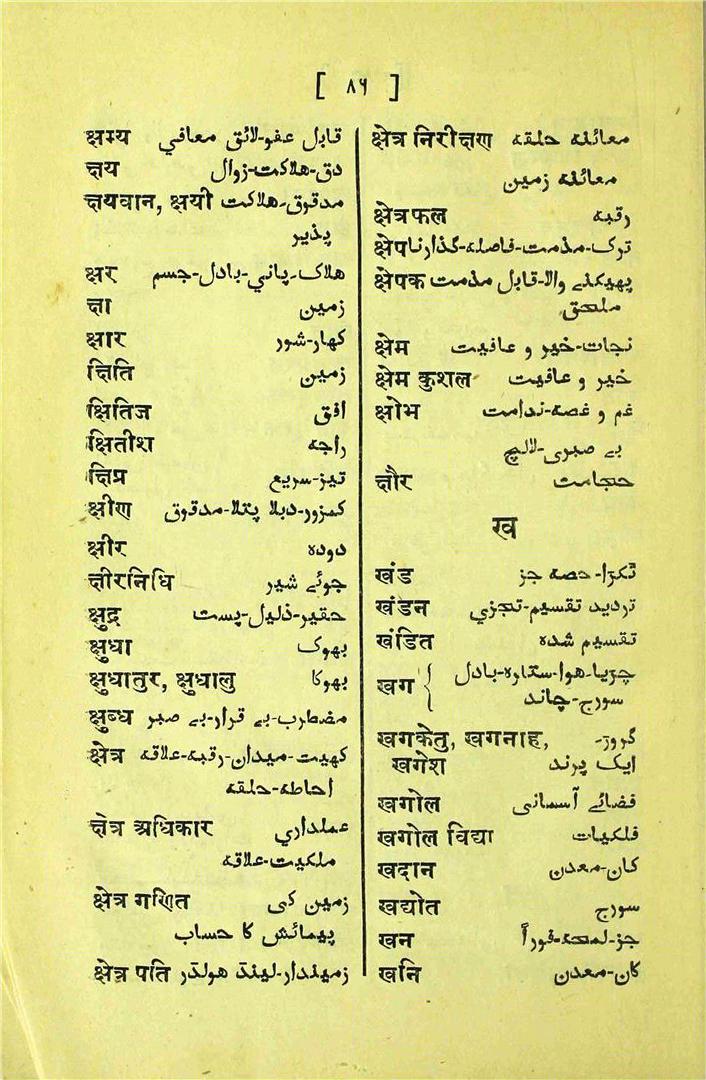 [ ٨٦ ]
क्षम्य قابل عفو-لائق معافي
क्षय دق-هلاکت-زوال
क्षयवान, क्षयी مدقوق-هلاکت
پذیر
क्षर هلاک-پاني-بادل-جسم
क्षा زمین
क्षार کهار-شور
क्षिति زمین
क्षितिज افق
क्षितीश راجه
क्षिप्र تیز-سریع
क्षीण کمزور-دبلا پتلا-مدقوق
क्षीर دوده
क्षीरनिधि جوئے شیر
क्षुद्र حقیر-ذلیل-پست
क्षुधा بهوک
क्षुधातुर, क्षुधालु بهوکا
क्षुब्ध مضطرب-بے قرار-بے صبر
क्षेत्र کهیت-میدان-رقبه-علاقه
احاطه-حلقه
क्षेत्र अधिकार عملداري
ملکیت-علاقه
क्षेत्र गणित زمین کی
پیمائش کا حساب
क्षेत्र पति زمیندار-لینڈ هولڈر
क्षेत्र निरीक्षण معائنه حلقه
معائنه زمین
क्षेत्रफल رقبه
क्षेप ترک-مذمت-فاصله-گذارنا
क्षेपक پهیکنے والا-قابل مذمت
ملحق
क्षेम نجات-خیر و عافیت
क्षेम कुशल خیر و عافیت
क्षोभ غم و غصه-ندامت
بے صبری-لالچ
क्षौर حجامت
ख
खंड ٹکڑا-حصه جز
खंडन تردید تقسیم-تجزي
खंडित تقسیم شده
खग { چڑیا-هوا-ستاره-بادل
سورج-چاند
खगकेतु, खगनाह, گروڑ-
खगेश ایک پرند
खगोल فضائے آسمانی
खगोल विद्या فلکیات
खदान کان-معدن
खद्योत سورج
खन جز-لمحه-فوراً
खनि کان-معدن